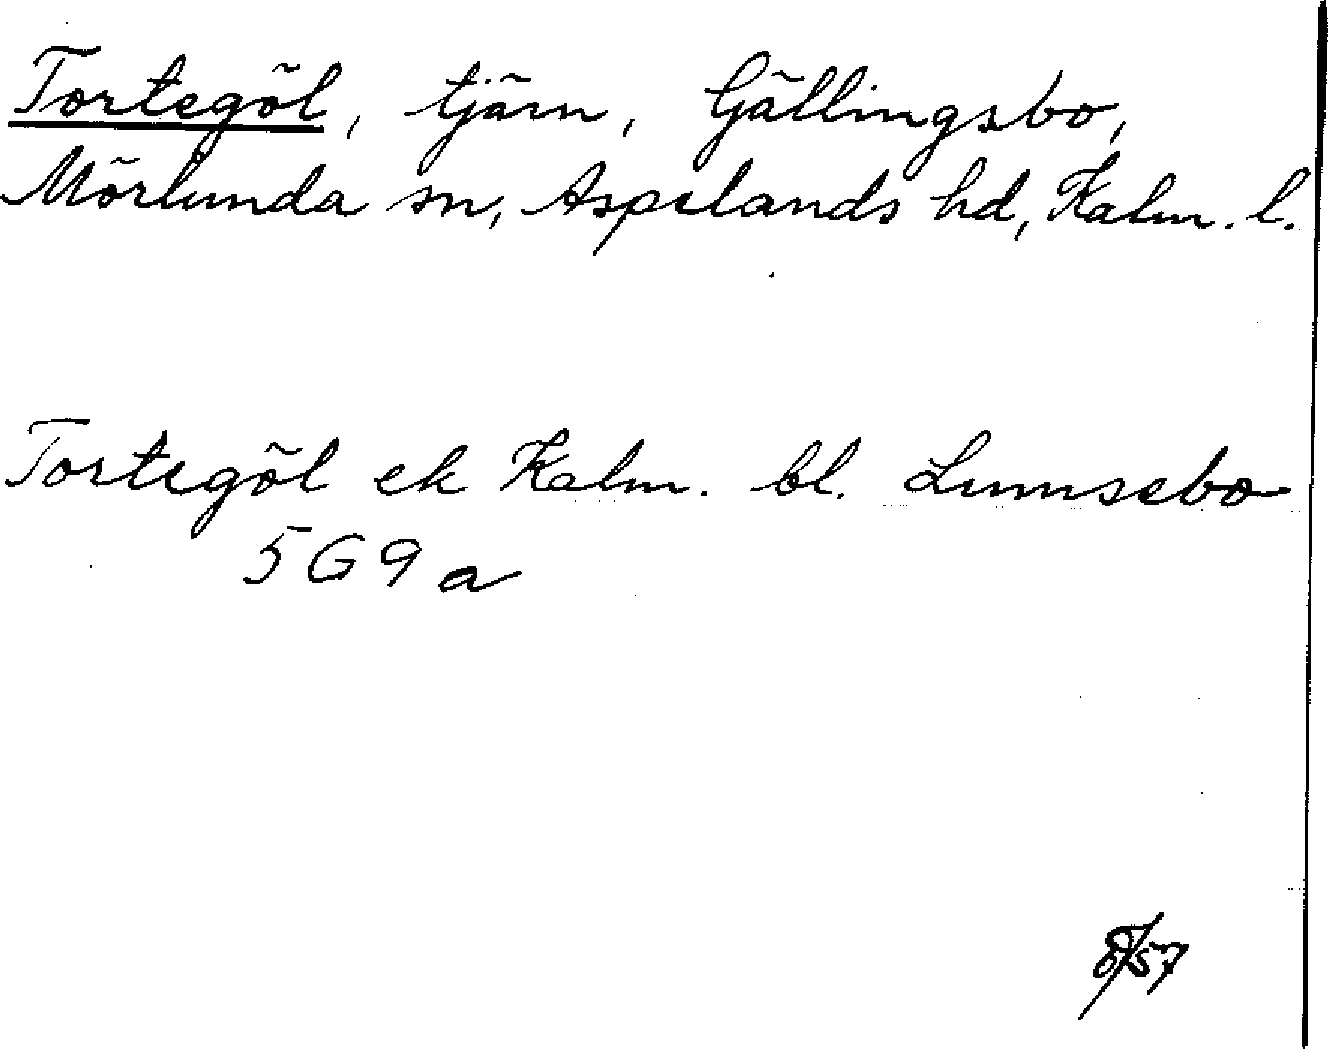 Tortegöl, tjärn, Gällingsbo,
Mörlunda sn, Aspelands hd, Kalm. l.
Tortegöl ek Kalm. bl. Lumsebo
5 G 9 a